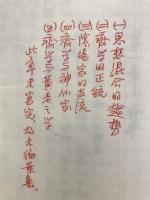 (一)思想混合的趨勢
(二)齊學的正統
(三)陰陽家的支流
(四)齊學与神仙家
(五)齊學与黃老之學
此章未寫完，故未編葉數